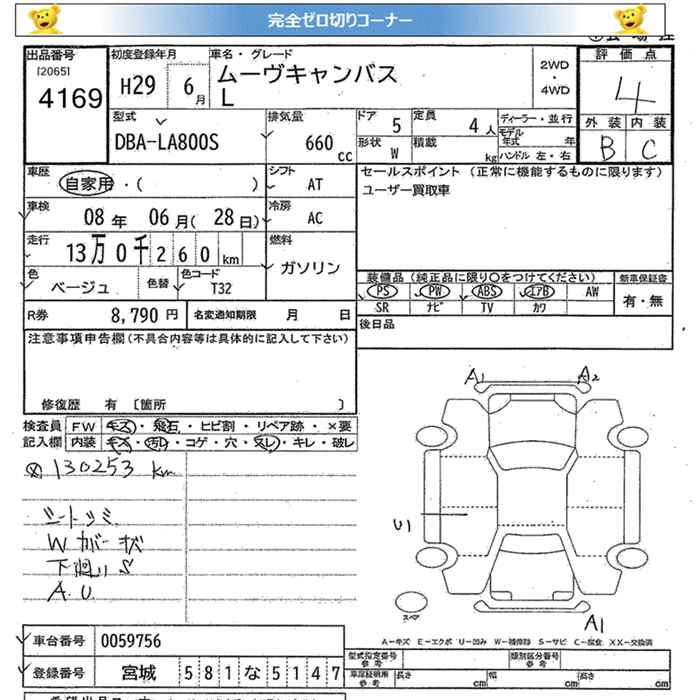 完全ゼロ切りコーナー
出品番号 初度登録年月 車名・グレード 評価点
[2065] 4169 H29 6月 ムーヴキャンバス L 2WD・4WD 4
型式 排気量 ドア 5 定員 4人 ディーラー・並行 外装 内装
DBA-LA800S 660cc 形状 W 積載 kg モデル年式 年 ハンドル 左・右 B C
車歴 自家用・( ) シフト AT セールスポイント (正常に機能するものに限ります)
ユーザー買取車
車検 08年 06月(28日) 冷房 AC
走行 13万0千260km 燃料 ガソリン
色 ベージュ 色替 色コード T32
装備品(純正品に限り〇をつけてください) 新車保証書
PS PW ABS エアB AW 有・無
SR ナビ TV カワ
R券 8,790円 名変通知期限 月 日 後日品
注意事項申告欄(不具合内容等は具体的に記入して下さい)
修復歴 有 〔箇所 〕
検査員 FW キズ・飛石・ヒビ割・リペア跡・×要
記入欄 内装 キズ・汚れ・コゲ・穴・スレ・キレ・破レ
130253 km
シートシミ
Wカバー状
下廻りS
A.U
A1 A2
U1
スペア
A1
A—キズ E—エクボ U—凹み W—補修跡 S—サビ C—腐食 XX—交換済
車台番号 0059756 型式指定番号 参考 類別区分番号 参考
登録番号 宮城 581 な 5147 車庫証明用 参考 長さ cm 幅 cm 高さ cm